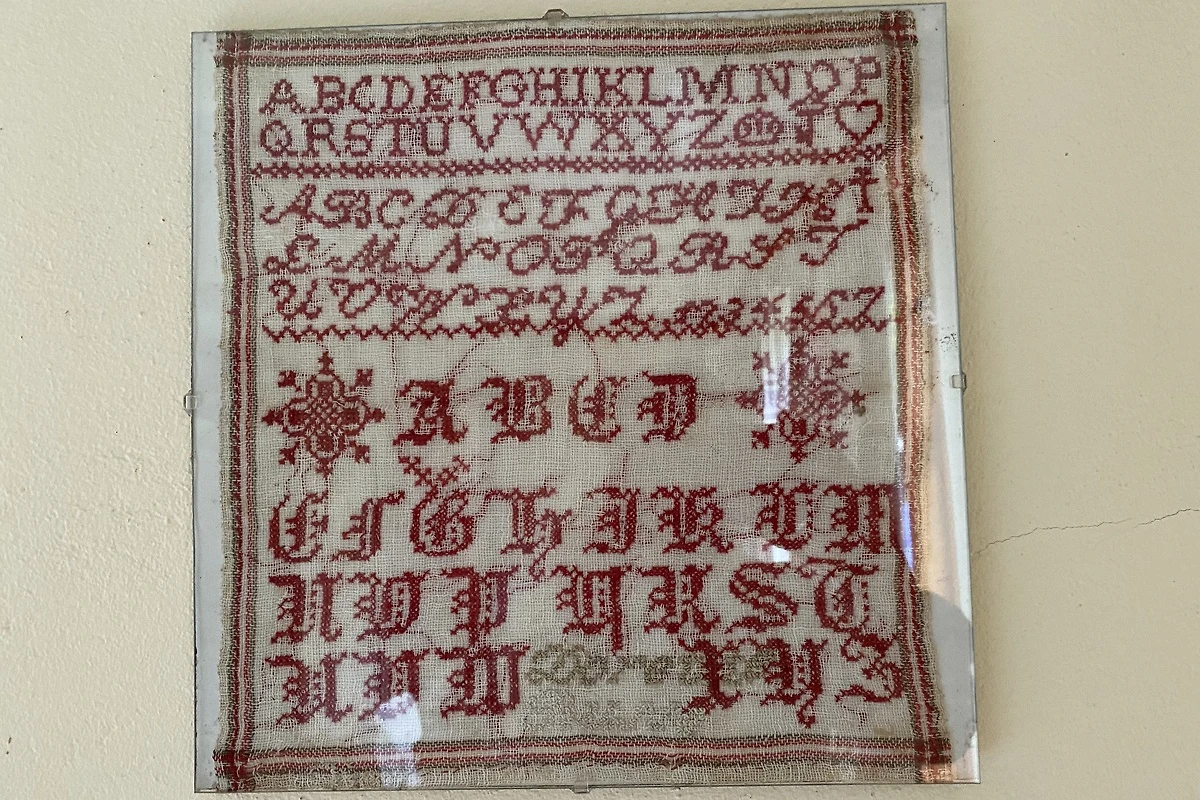 ABCDEFGHIKLMNOP
QRSTUVWXYZ
ABCDEFGHIK
LMNOPQRST
UVWXYZ
ABCD
EFGHIKLM
NOPQRST
UVW XYZ